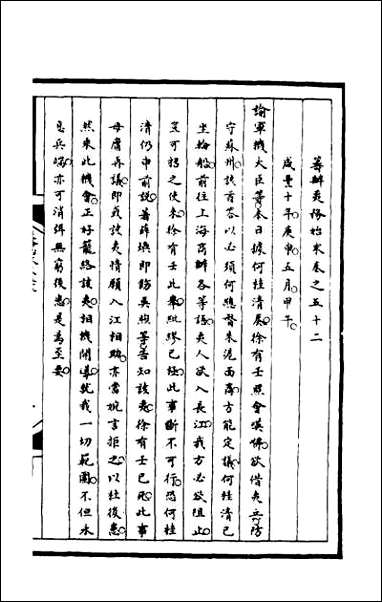 籌辦夷務始末卷之五十二
咸豐十年庚申五月甲午
諭軍機大臣等本日據何桂清奏徐有壬照會嘆咈欲借夷兵防
守蘇州該酋答以必須何總督來滬面商方能定議何桂清已
坐輪船前往上海商辦各等語夷人欲入長江我方必欲阻止
豈可招之使來徐有壬此舉紕繆已極此事斷不可行恐何桂
清仍申前說著薛煥即飭吳煦等告知該夷徐有壬已死此事
毋庸再議即或該夷情願入江相助亦當婉言拒之以杜後患
然乘此機會正好籠絡該夷相機開導就我一切範圍不但水
息兵端亦可消弭無窮後患是為至要